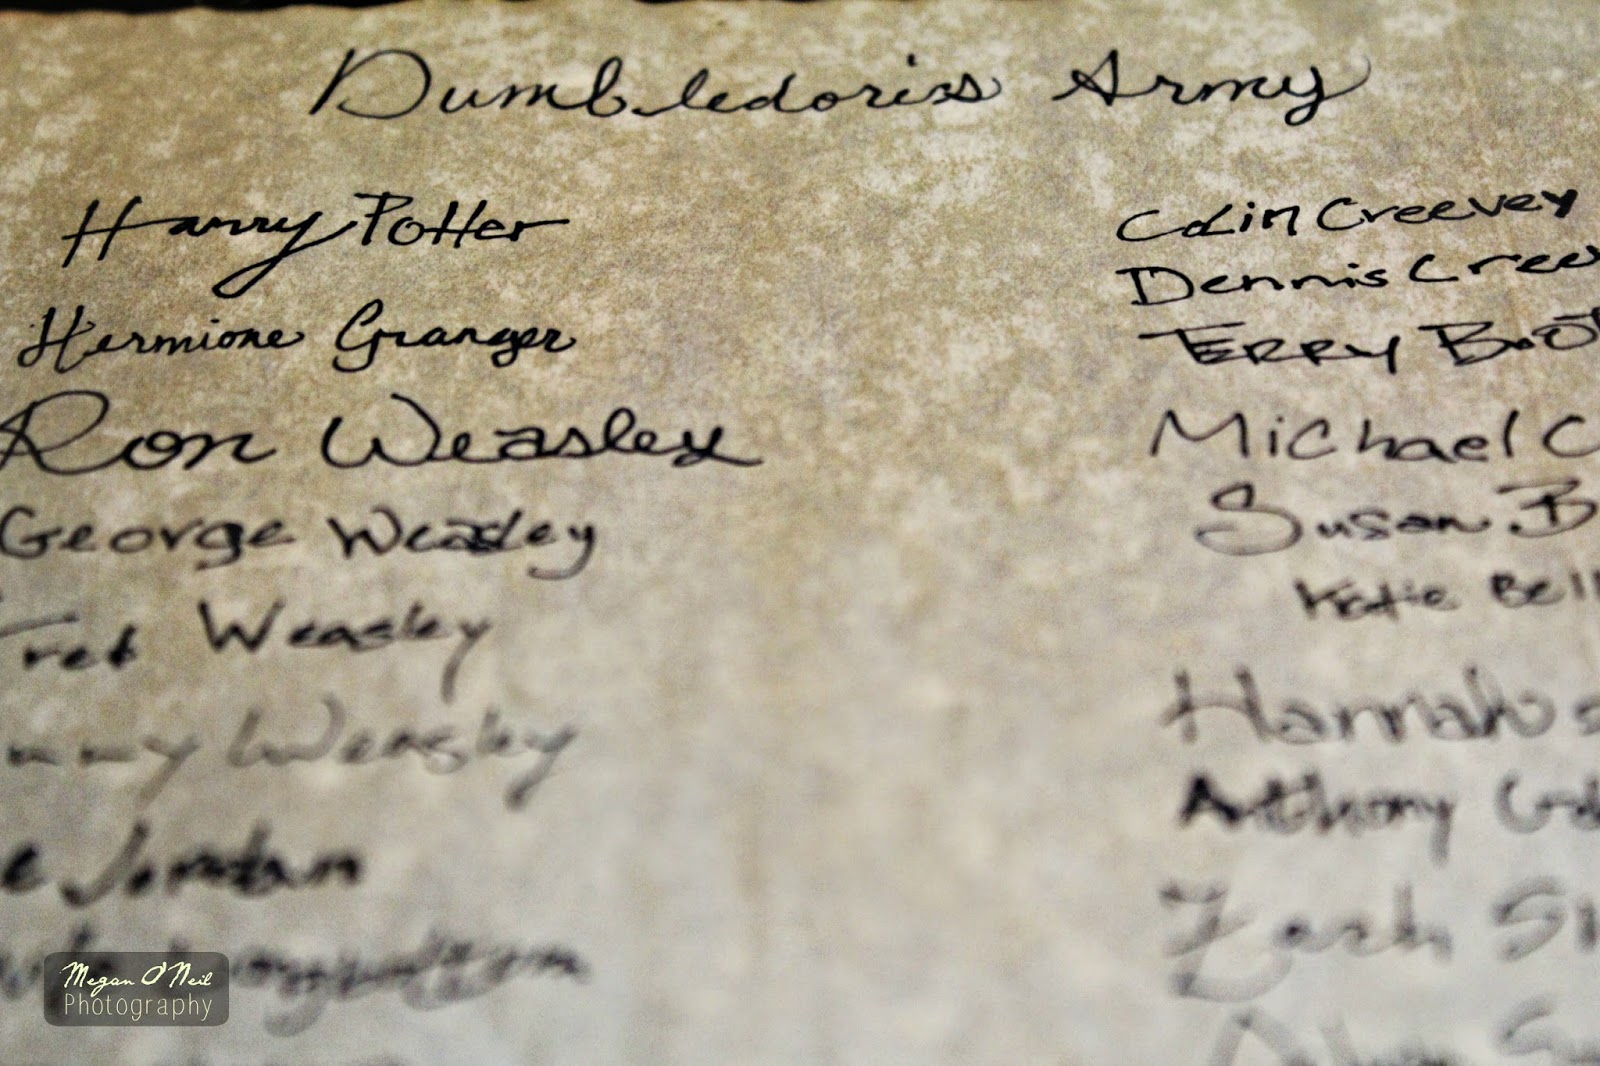 Dumbledore's Army
Harry Potter
Hermione Granger
Ron Weasley
George Weasley
Fred Weasley
Weasley
Jordan
Longbottom
Colin Creevey
Dennis Cree
Terry Boot
Michael C
Susan B
Katie Bell
Hannah
Anthony
Zach
Megan O'Neil
Photography